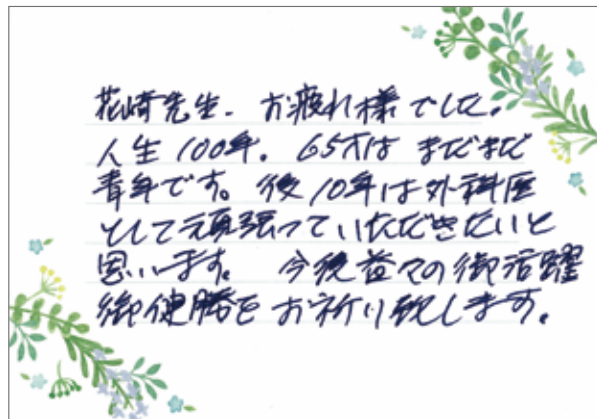 花崎先生. お疲れ様でした.
人生100年. 65才は まだまだ
青年です。後10年は外科医
として頑張っていただきたいと
思います。 今後益々の御活躍
御健勝を お祈り致します.